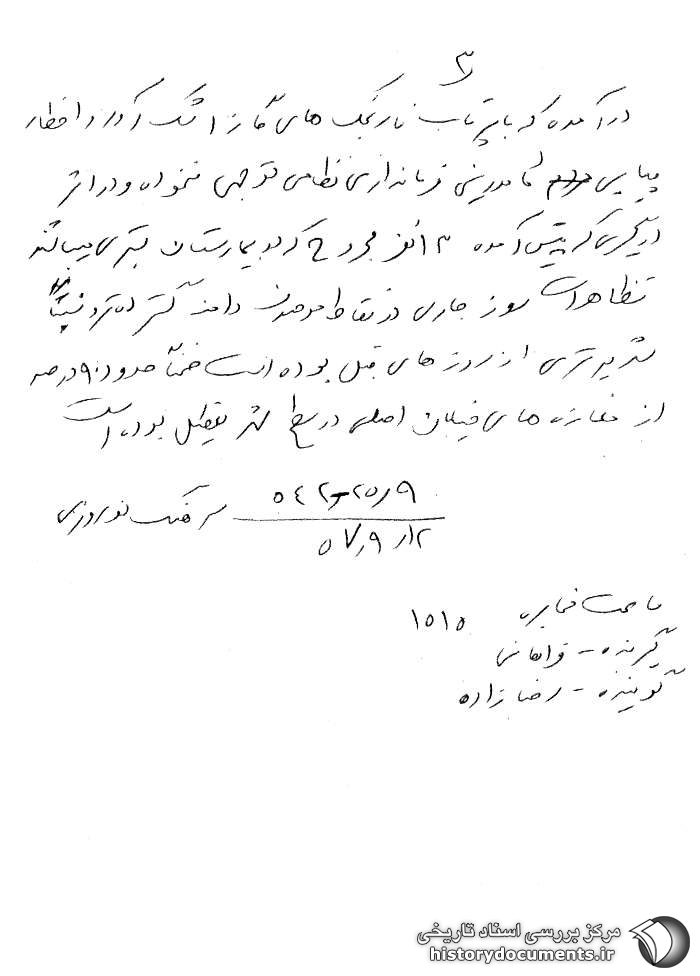 ۳
در آمده که با پرتاب نارنجک های گاز اشک آور و اخطار
پیاپی مامورین فرمانداری نظامی توجهی ننموده و در اثر
درگیری که پیش آمده ۱۳ نفر مجروح که در بیمارستان بستری میباشند
تظاهرات روز جاری در نقاط دامنه گسترده تر و نسبتاً
شدیدتری از روزهای قبل بوده است ضمناً حدود ۹۰ درصد
از مغازه های خیابان اصلی در سطح شهر تعطیل بوده است
سرهنگ نوروزی
۵۷٫۹٫۱۲
ساعت مخابره ۱۵۱۵
گیرنده - فراهانی
گوینده - رضازاده
مرکز بررسی اسناد تاریخی
historydocuments.ir